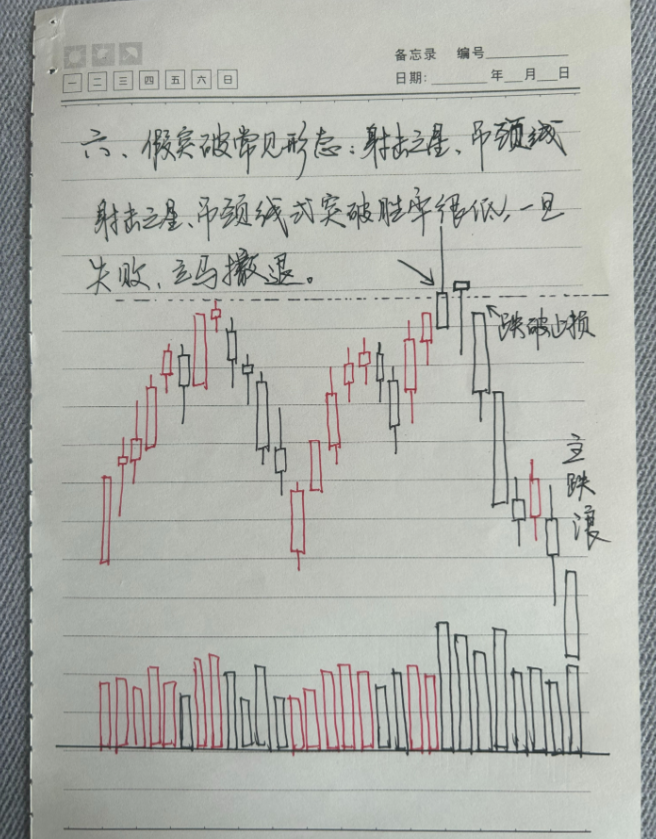 备忘录 编号
一 二 三 四 五 六 日
日期: 年 月 日
六、假突破常见形态:射击之星、吊颈线
射击之星、吊颈线式突破胜率很低,一旦
失败,立马撤退。
跌破止损
主跌浪